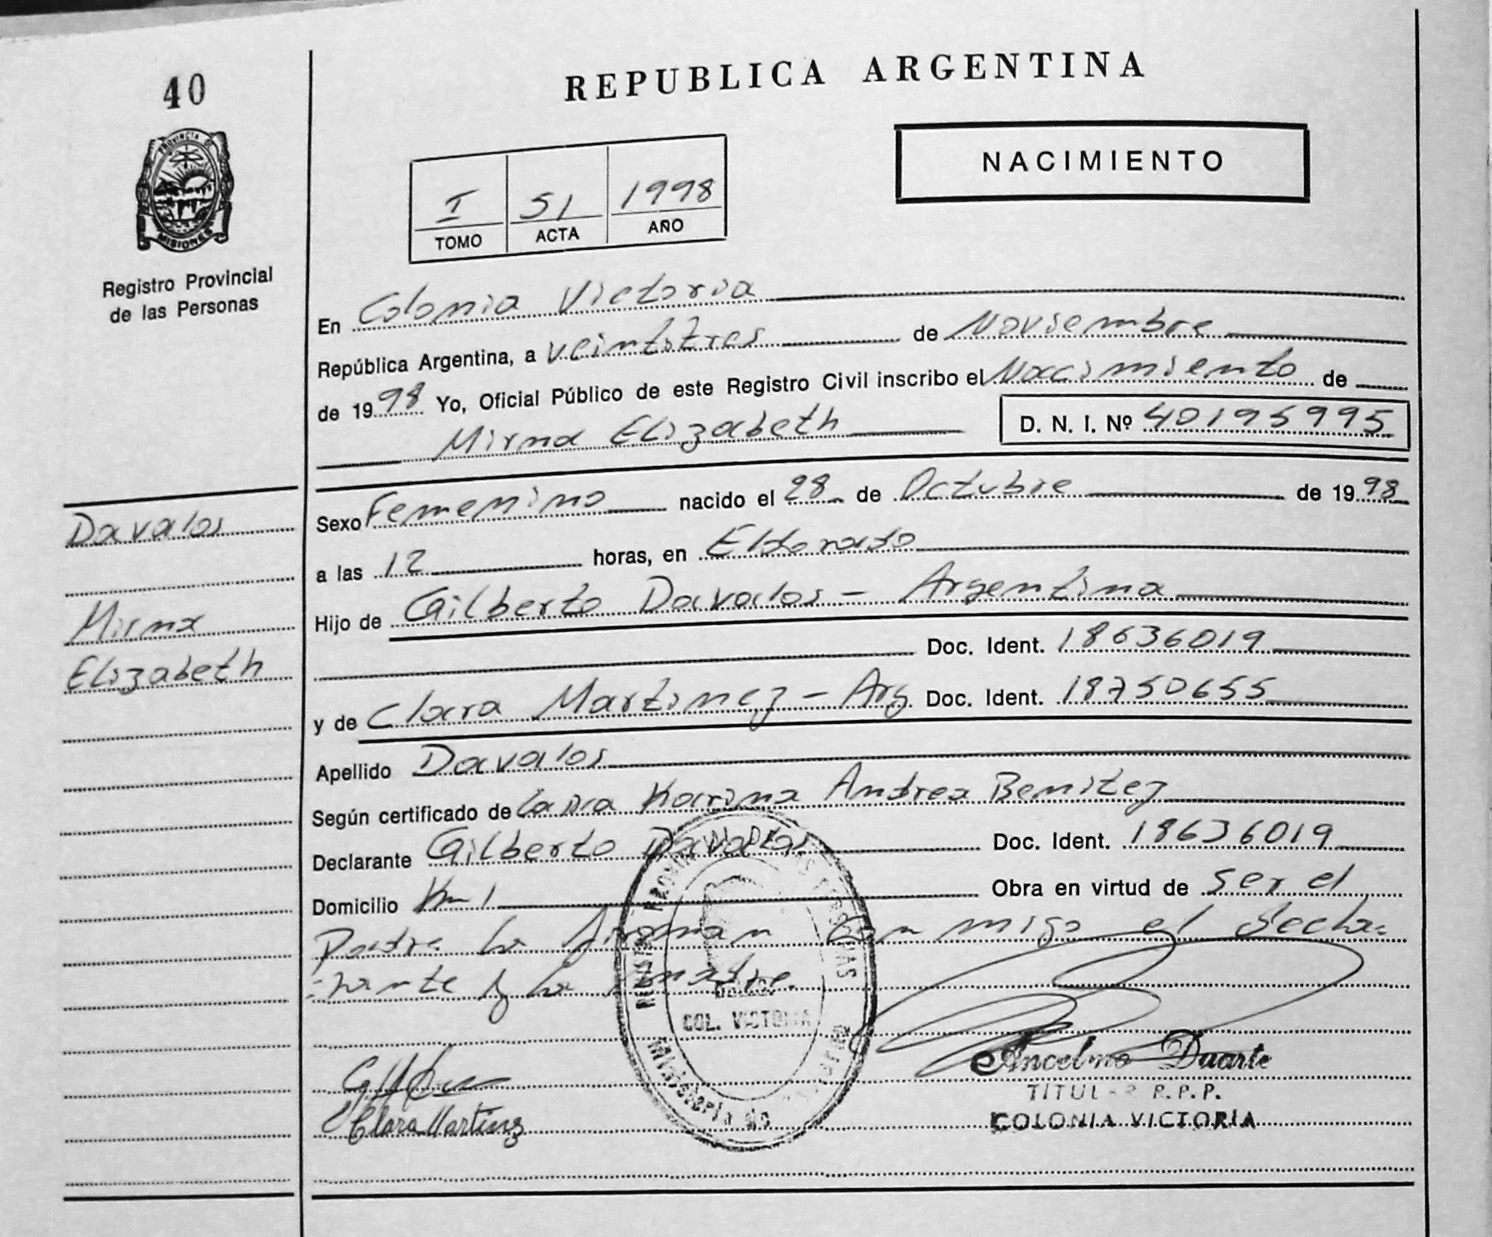 40
REPUBLICA ARGENTINA
PROVINCIA DE
MISIONES
Registro Provincial
de las Personas
NACIMIENTO
I 51 1998
TOMO ACTA AÑO
En Colonia Victoria
República Argentina, a veintitres de Noviembre
de 1998 Yo, Oficial Público de este Registro Civil inscribo el Nacimiento de
Mirna Elizabeth D. N. I. Nº 40195995
Davalos
Mirna
Elizabeth
Sexo Femenino nacido el 28 de Octubre de 1998
a las 12 horas, en Eldorado
Hijo de Gilberto Davalos - Argentina
Doc. Ident. 18636019
y de Clara Martinez - Arg Doc. Ident. 18750655
Apellido Davalos
Según certificado de Karina Andrea Benitez
Declarante Gilberto Davalos Doc. Ident. 18636019
Domicilio Km 1 Obra en virtud de ser el
Padre lo firman conmigo el decla=
=rante y la madre.
COL. VICTORIA
Ministerio de
Clara Martinez
Ancelmo Duarte
TITULAR R.P.P.
COLONIA VICTORIA